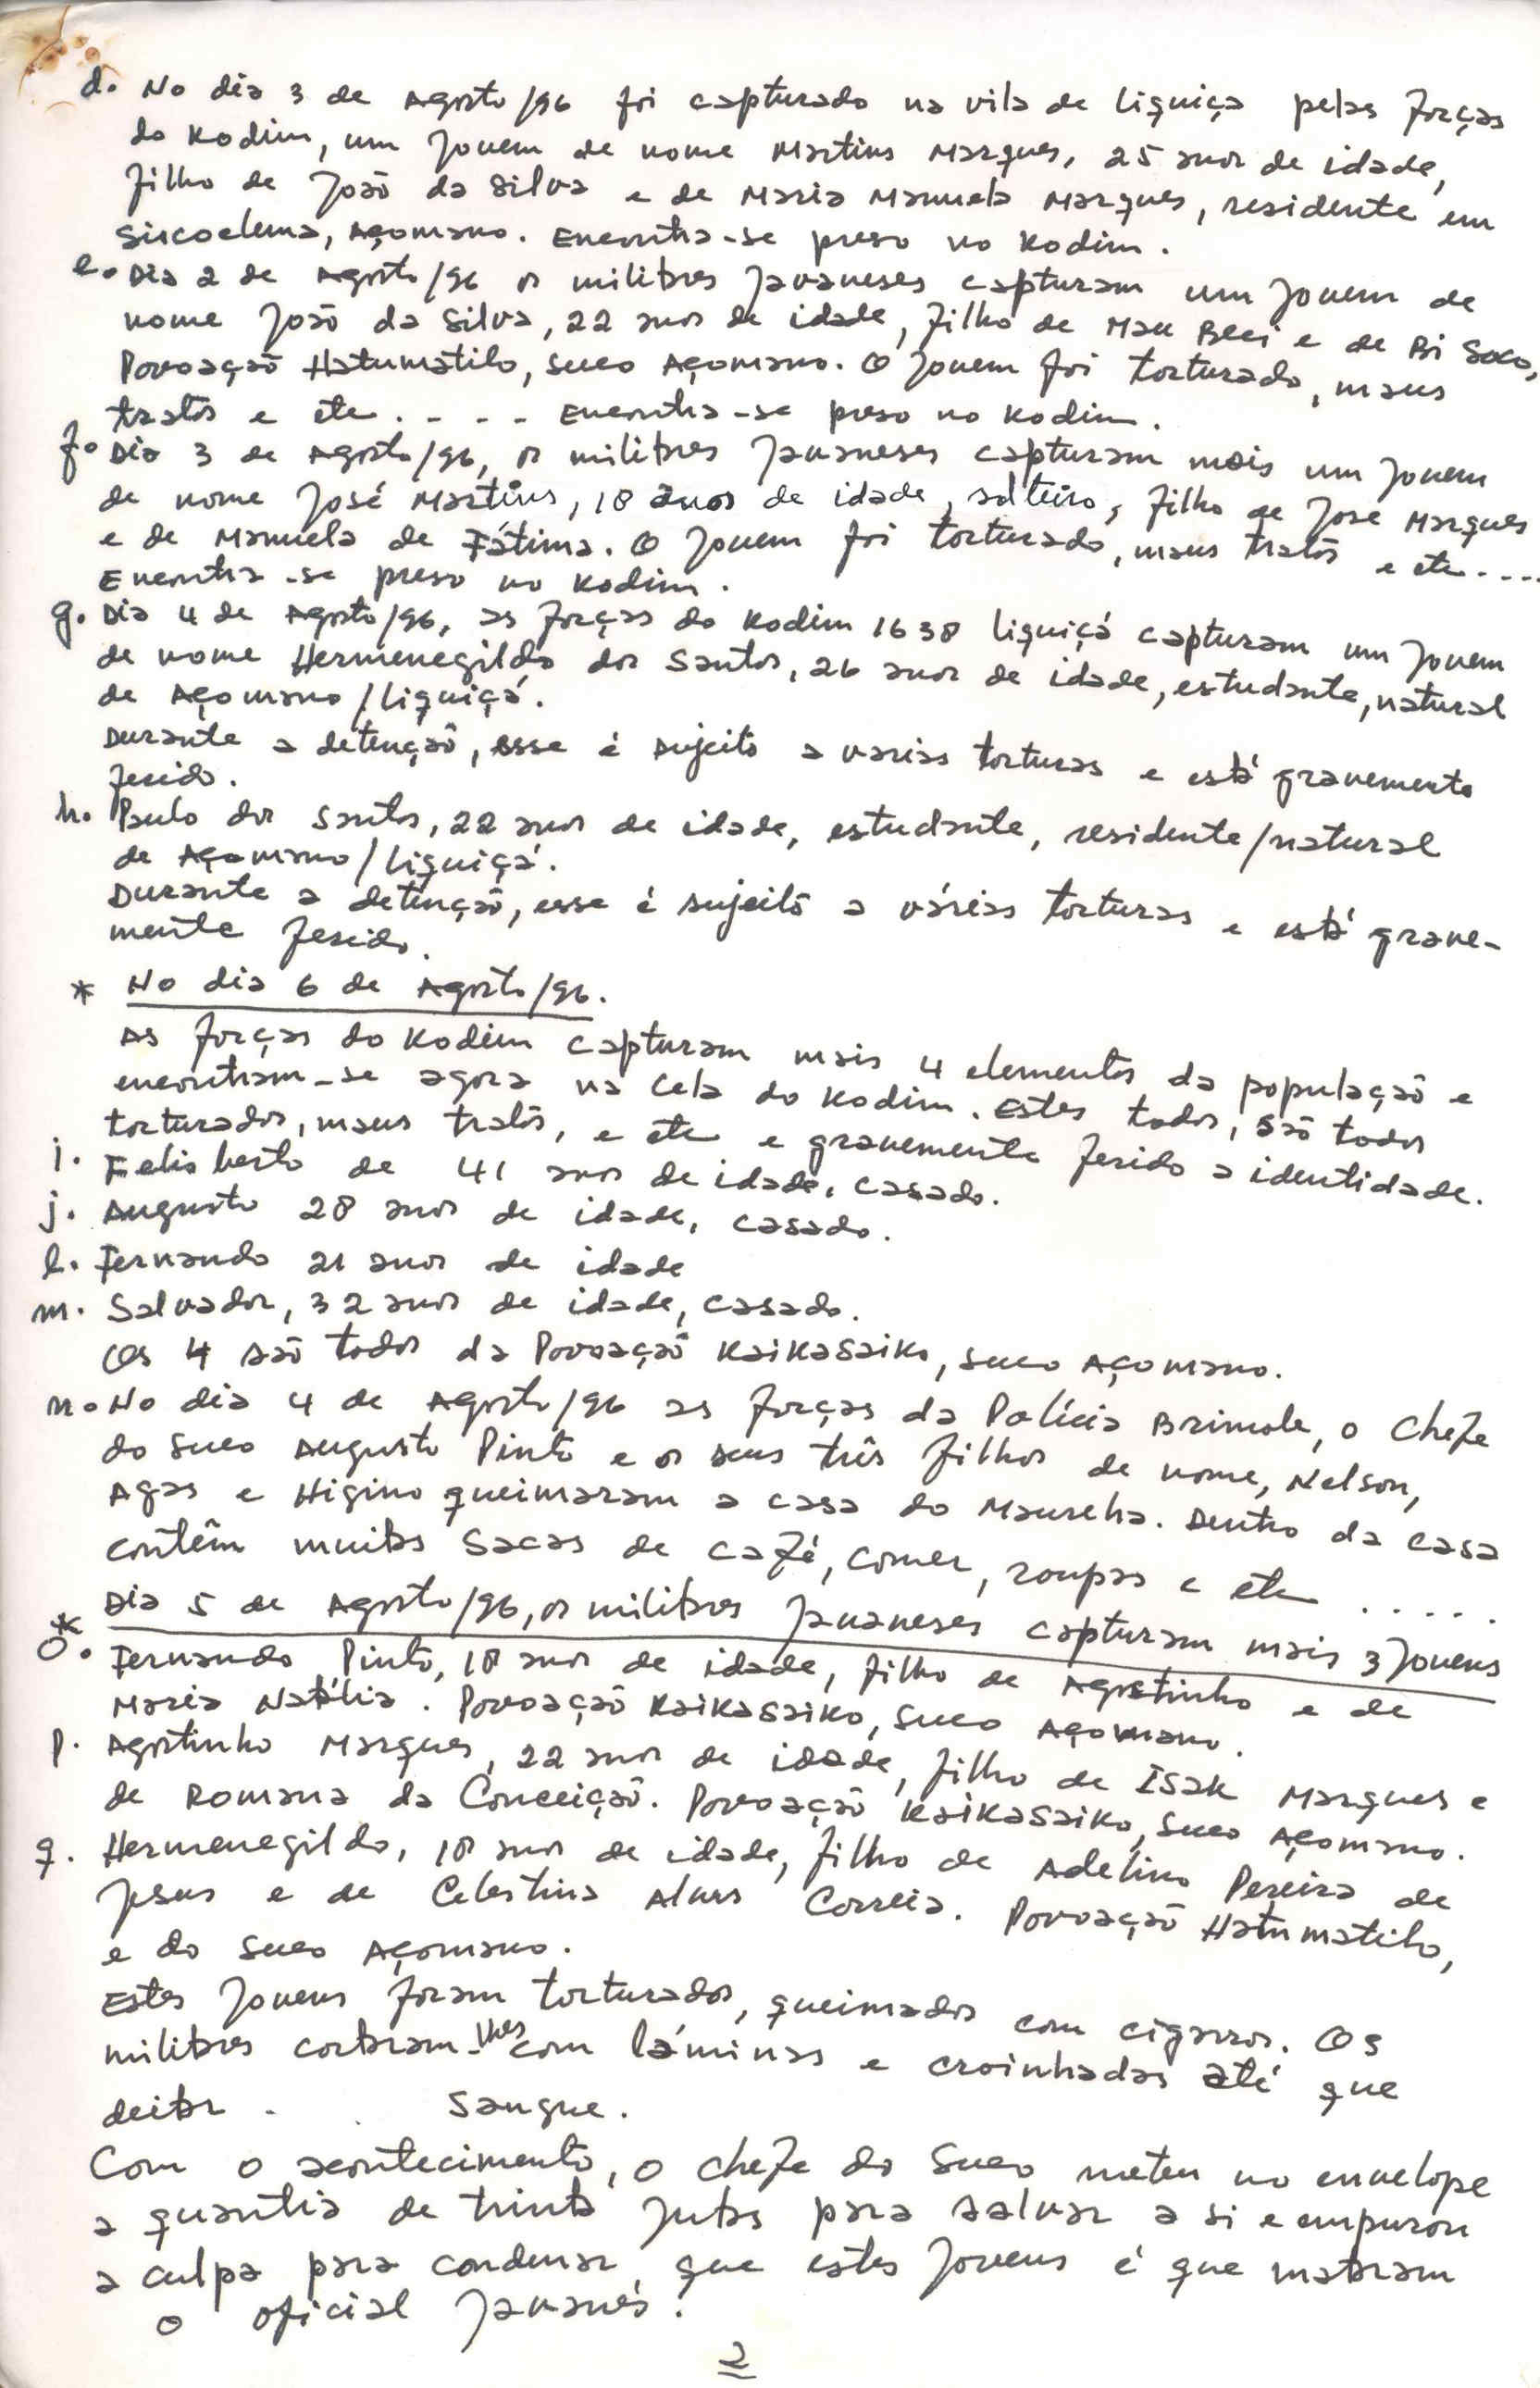 d. No dia 3 de Agosto/96 foi capturado na vila de Liquiça pelas forças
do Kodim, um jovem de nome Martins Marques, 25 anos de idade,
filho de João da Silva e de Maria Manuela Marques, residente em
Siscoelema, Açomano. Encontra-se preso no Kodim.
e. Dia 2 de Agosto/96 os militares Javaneses capturam um jovem de
nome João da Silva, 22 anos de idade, filho de Mau Beci e de Bi Soco,
Povoação Hatumatilo, suco Açomano. O jovem foi torturado, maus
tratos e etc. . . . Encontra-se preso no Kodim.
f. Dia 3 de Agosto/96, os militares Javaneses capturam mais um jovem
de nome José Martins, 18 anos de idade, solteiro, filho de José Marques
e de Manuela de Fátima. O jovem foi torturado, maus tratos e etc....
Encontra-se preso no Kodim.
g. Dia 4 de Agosto/96, as forças do Kodim 1638 Liquiçá capturam um jovem
de nome Hermenegildo dos Santos, 26 anos de idade, estudante, natural
de Açomano/Liquiçá.
Durante a detenção, esse é sujeito a varias torturas e está gravemente
ferido.
h. Paulo dos Santos, 22 anos de idade, estudante, residente/natural
de Açomano/Liquiçá.
Durante a detenção, esse é sujeito a várias torturas e está grave-
mente ferido.
* No dia 6 de Agosto/96.
As forças do Kodim capturam mais 4 elementos da população e
encontram-se agora na cela do Kodim. Estes todos, são todos
torturados, maus tratos, e etc e gravemente ferido a identidade.
i. Felisberto de 41 anos de idade, casado.
j. Augusto 28 anos de idade, casado.
l. Fernando 21 anos de idade
m. Salvador, 32 anos de idade, casado.
Os 4 são todos da Povoação Kaikasaiko, suco Açomano.
n. No dia 4 de Agosto/96 as forças da Polícia Brimole, o Chefe
do suco Augusto Pinto e os seus três filhos de nome, Nelson,
Agas e Higino queimaram a casa do Maureha. Dentro da casa
contêm muitas sacas de café, comer, roupas e etc .....
* Dia 5 de Agosto/96, os militares Javaneses capturam mais 3 jovens
o. Fernando Pinto, 18 anos de idade, filho de Agostinho e de
Maria Natália. Povoação Kaikasaiko, suco Açomano.
p. Agostinho Marques, 22 anos de idade, filho de Isak Marques e
de Romana da Conceição. Povoação Kaikasaiko, suco Açomano.
q. Hermenegildo, 18 anos de idade, filho de Adelino Pereira de
Jesus e de Celestina Alves Correia. Povoação Hatumatilo,
e do suco Açomano.
Estes jovens foram torturados, queimados com cigarros. Os
militares cortaram-lhes com láminas e croinhadas até que
deitar . . sangue.
Com o acontecimento, o chefe do suco meteu no envelope
a quantia de trinta jutas para salvar a si e empurou
a culpa para condenar que estes jovens é que mataram
o oficial Javanés.
2